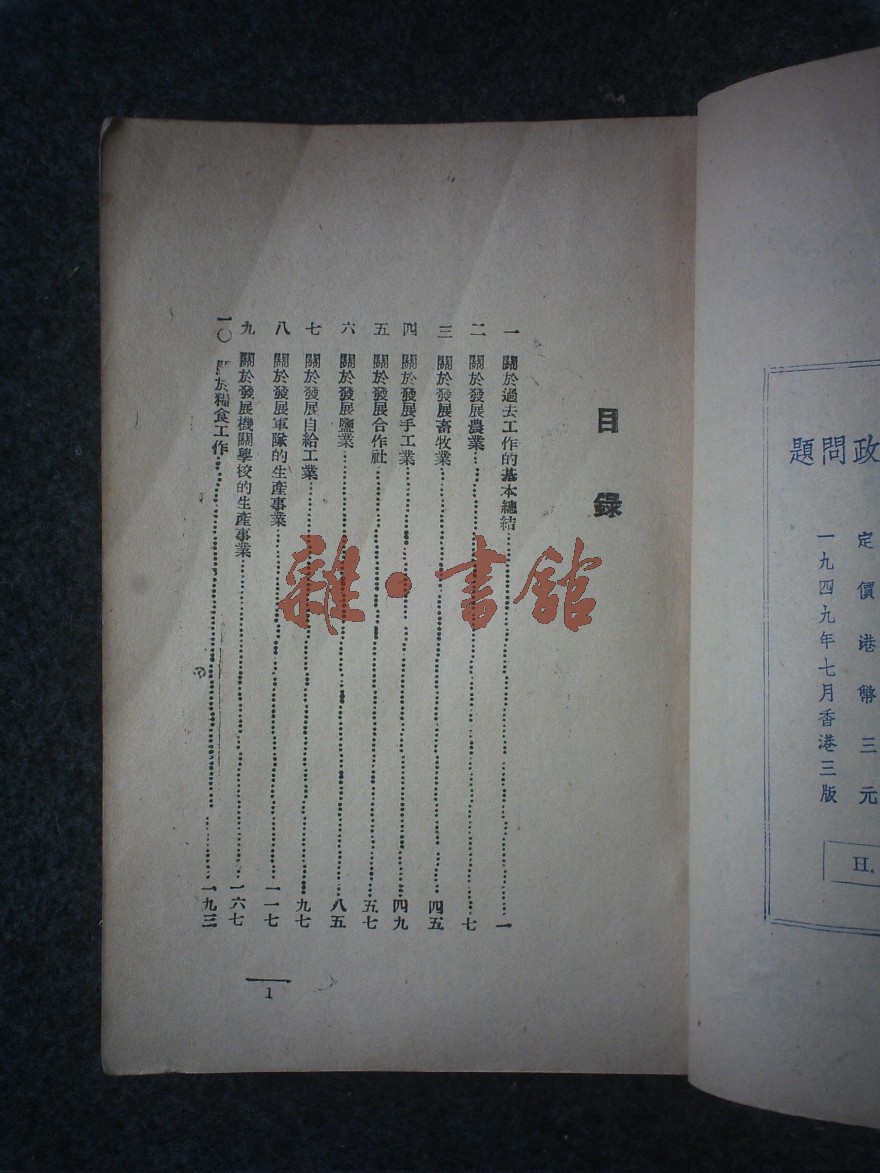 題問政
定價港幣三元
一九四九年七月香港三版
H.
目錄
一 關於過去工作的基本總結 一
二 關於發展農業 七
三 關於發展畜牧業 四五
四 關於發展手工業 四九
五 關於發展合作社 五七
六 關於發展鹽業 八五
七 關於發展自給工業 九七
八 關於發展軍隊的生產事業 一一七
九 關於發展機關學校的生產事業 一六七
一〇 於糧食工作 一九三
1
雜·書館